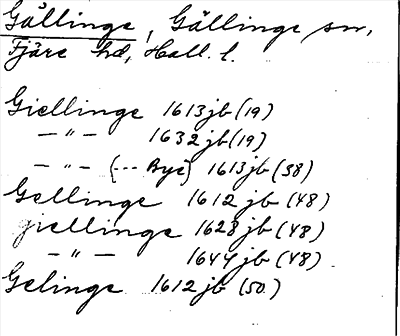 Gällinge, Gällinge sn,
Fjäre hd, Hall. l.
Giellinge 1613 jb (19)
—"— 1632 jb (19)
—"— (... Bye) 1613 jb (58)
Gellinge 1612 jb (48)
Jiellinge 1628 jb (48)
—"— 1644 jb (48).
Gelinge 1612 jb (50)